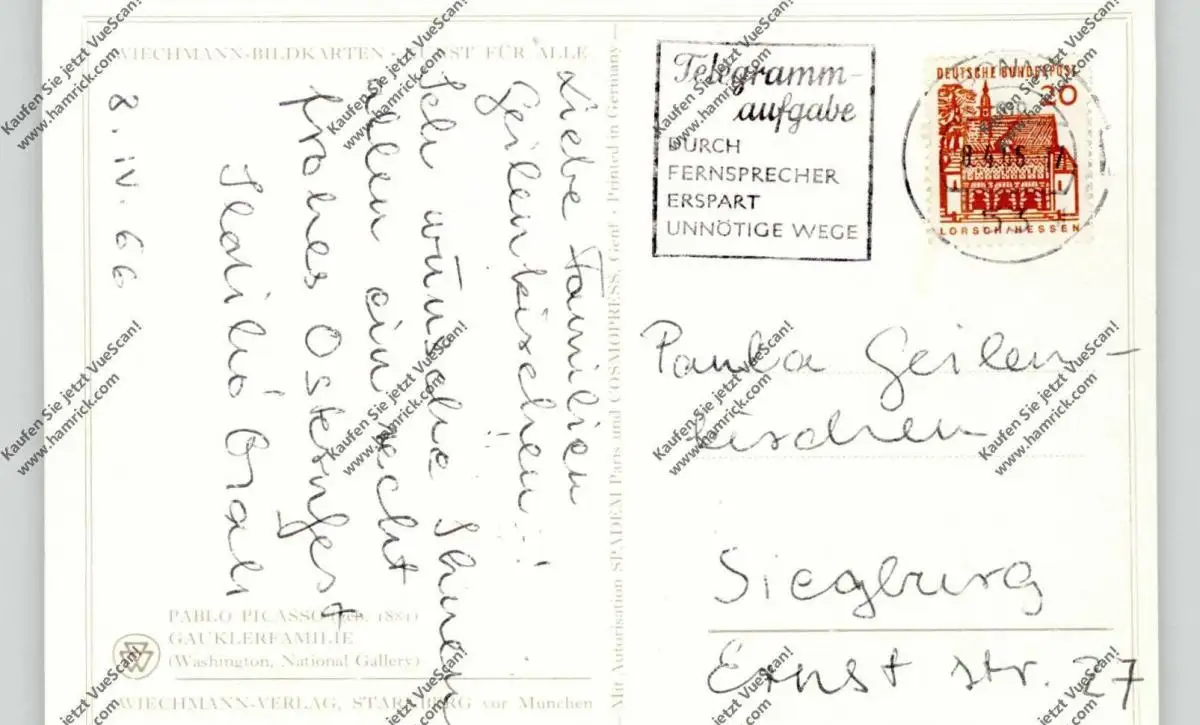 WIECHMANN-BILDKARTEN · KUNST FÜR ALLE
8. IV. 66
Liebe Familien
Geilenkirschen!
Ich wünsche Ihnen
allen ein recht
frohes Osterfest
PABLO PICASSO (geb. 1881)
GAUKLERFAMILIE
(Washington, National Gallery)
WIECHMANN-VERLAG, STARNBERG vor München
Mit Autorisation SPADEM Paris und COSMOPRESS, Genf · Printed in Germany
Telegramm-
aufgabe
DURCH
FERNSPRECHER
ERSPART
UNNÖTIGE WEGE
DEUTSCHE BUNDESPOST
20
LORSCH/HESSEN
Paula Geilen-
kirschen
Siegburg
Ernst str. 27
Kaufen Sie jetzt VueScan!
www.hamrick.com